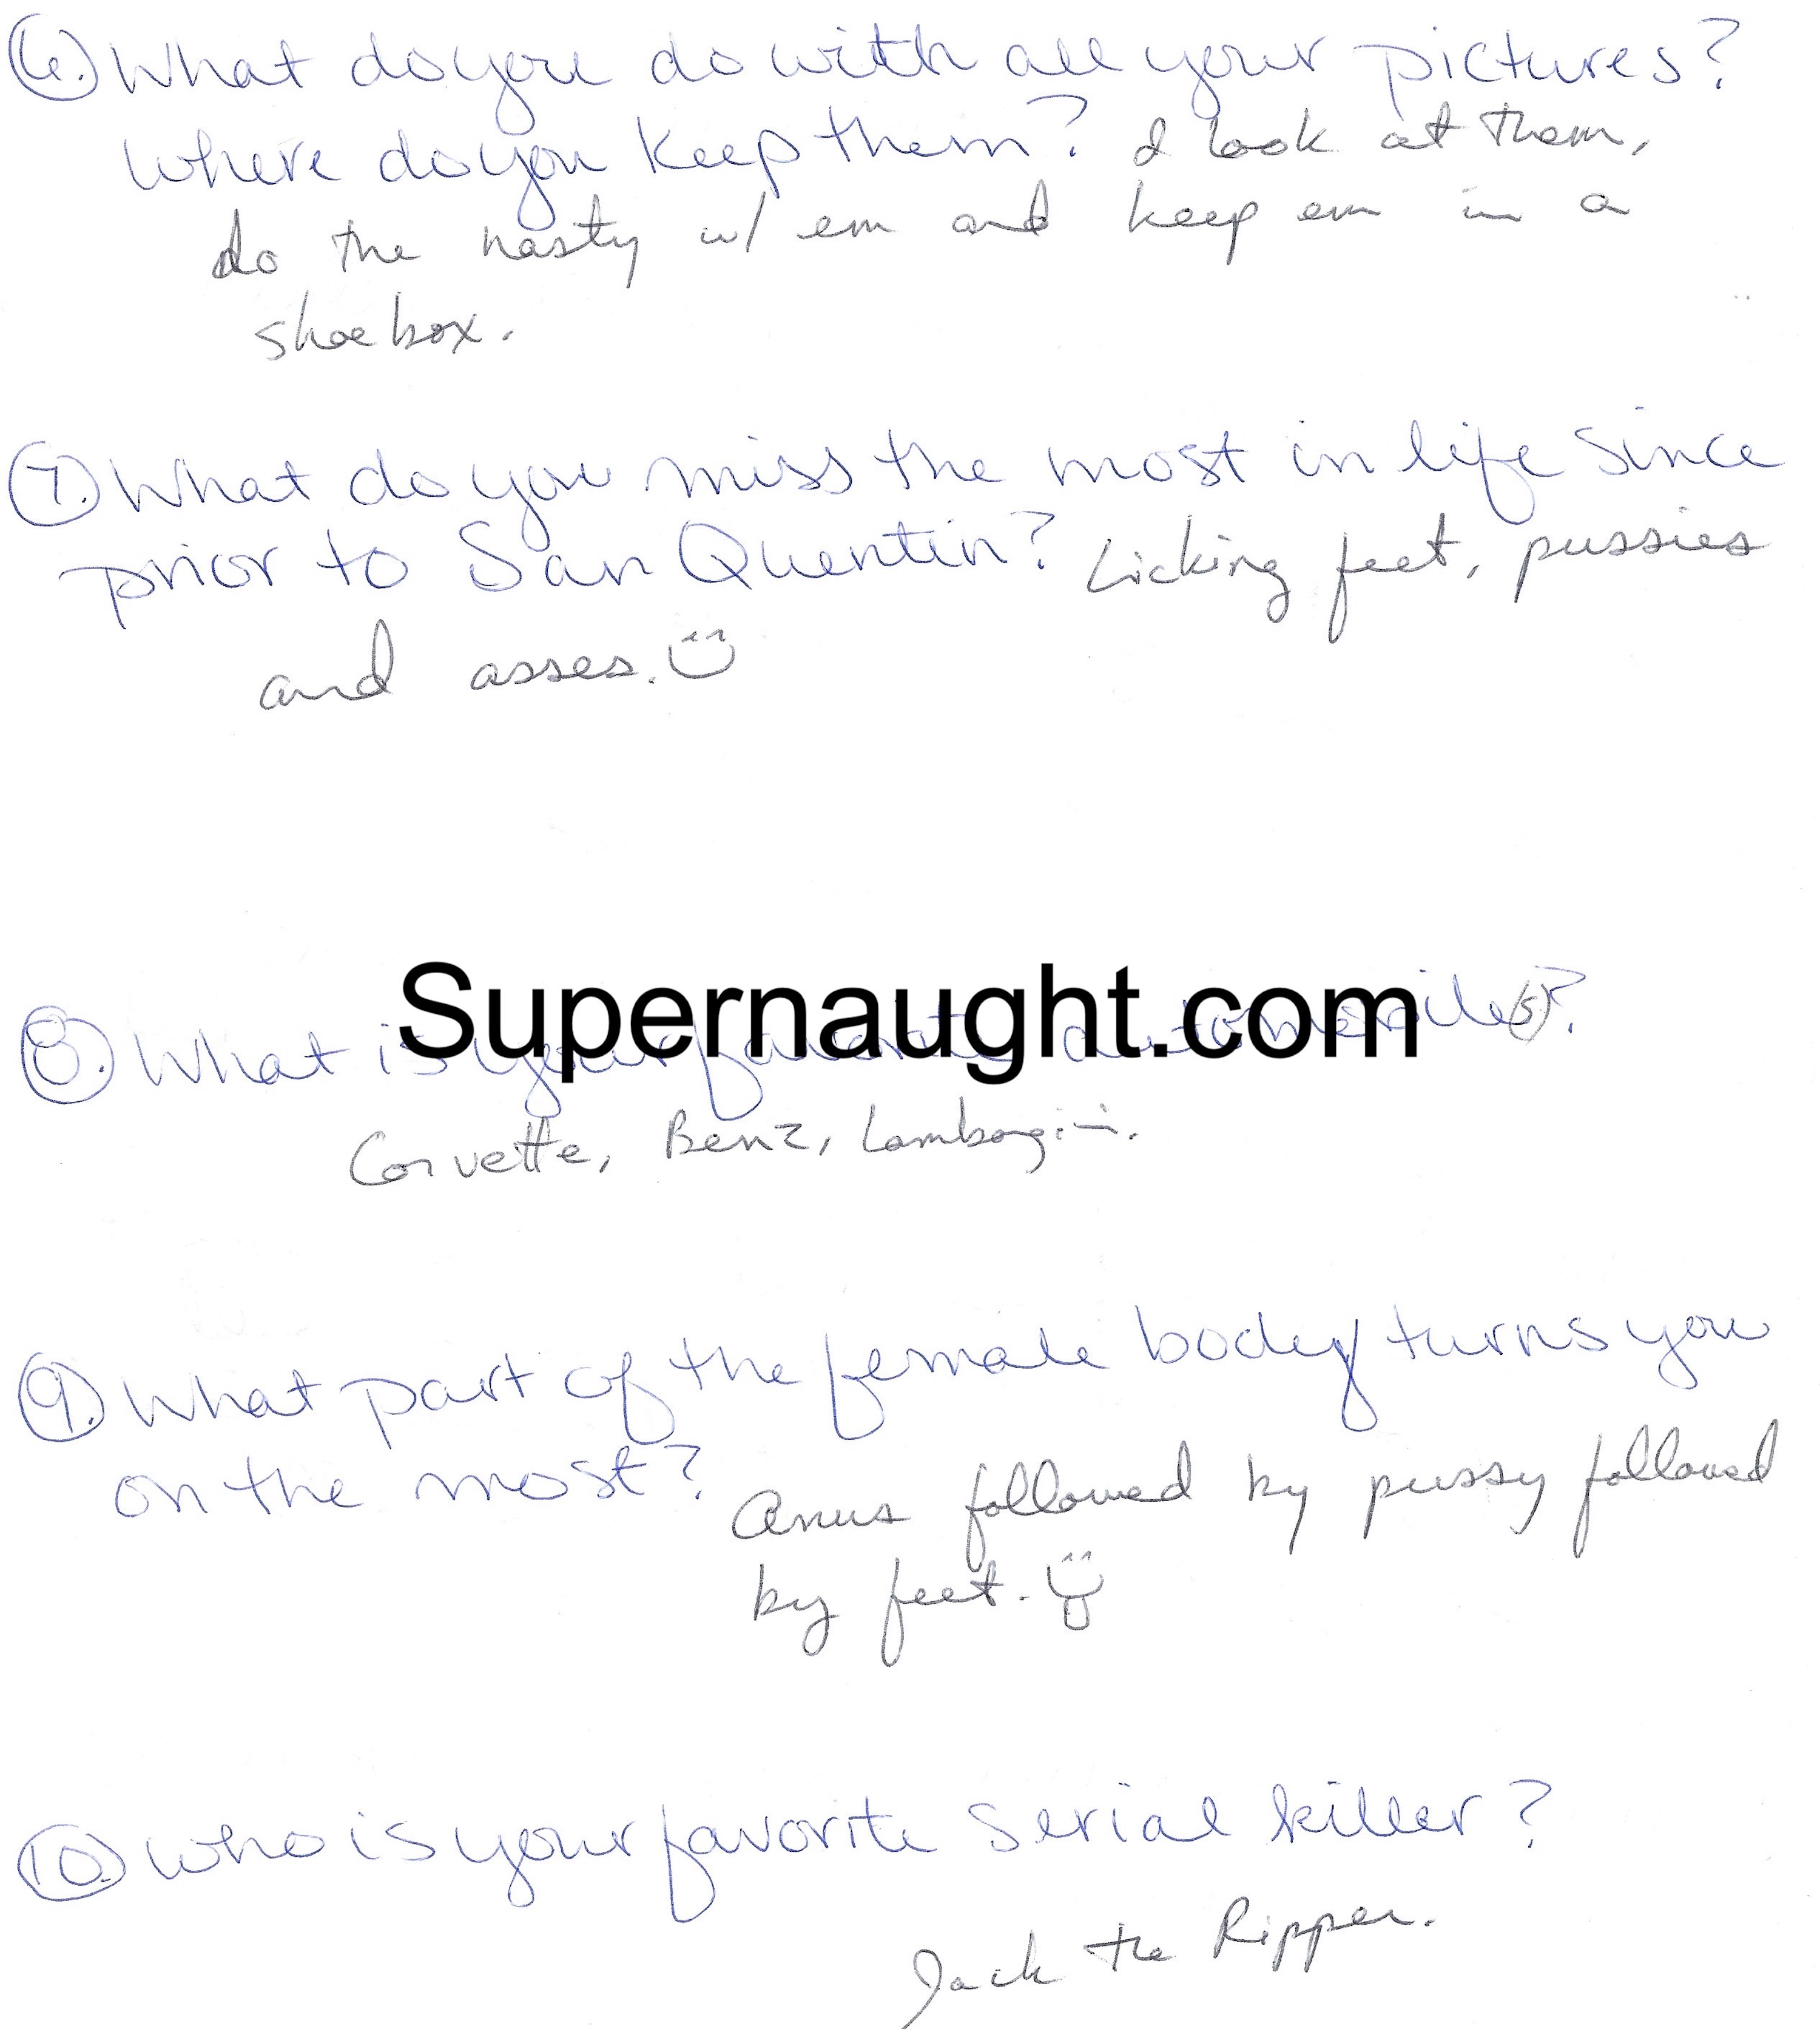 6.) What do you do with all your pictures?
Where do you keep them? I look at them,
do the nasty w/ em and keep em in a
shoebox.
7.) What do you miss the most in life since
prior to San Quentin? Licking feet, pussies
and asses.
Supernaught.com
8.) What is your favorite automobile(s)?
Corvette, Benz, Lamborgini.
9.) What part of the female body turns you
on the most? Anus followed by pussy followed
by feet.
10.) Who is your favorite serial killer?
Jack the Ripper.